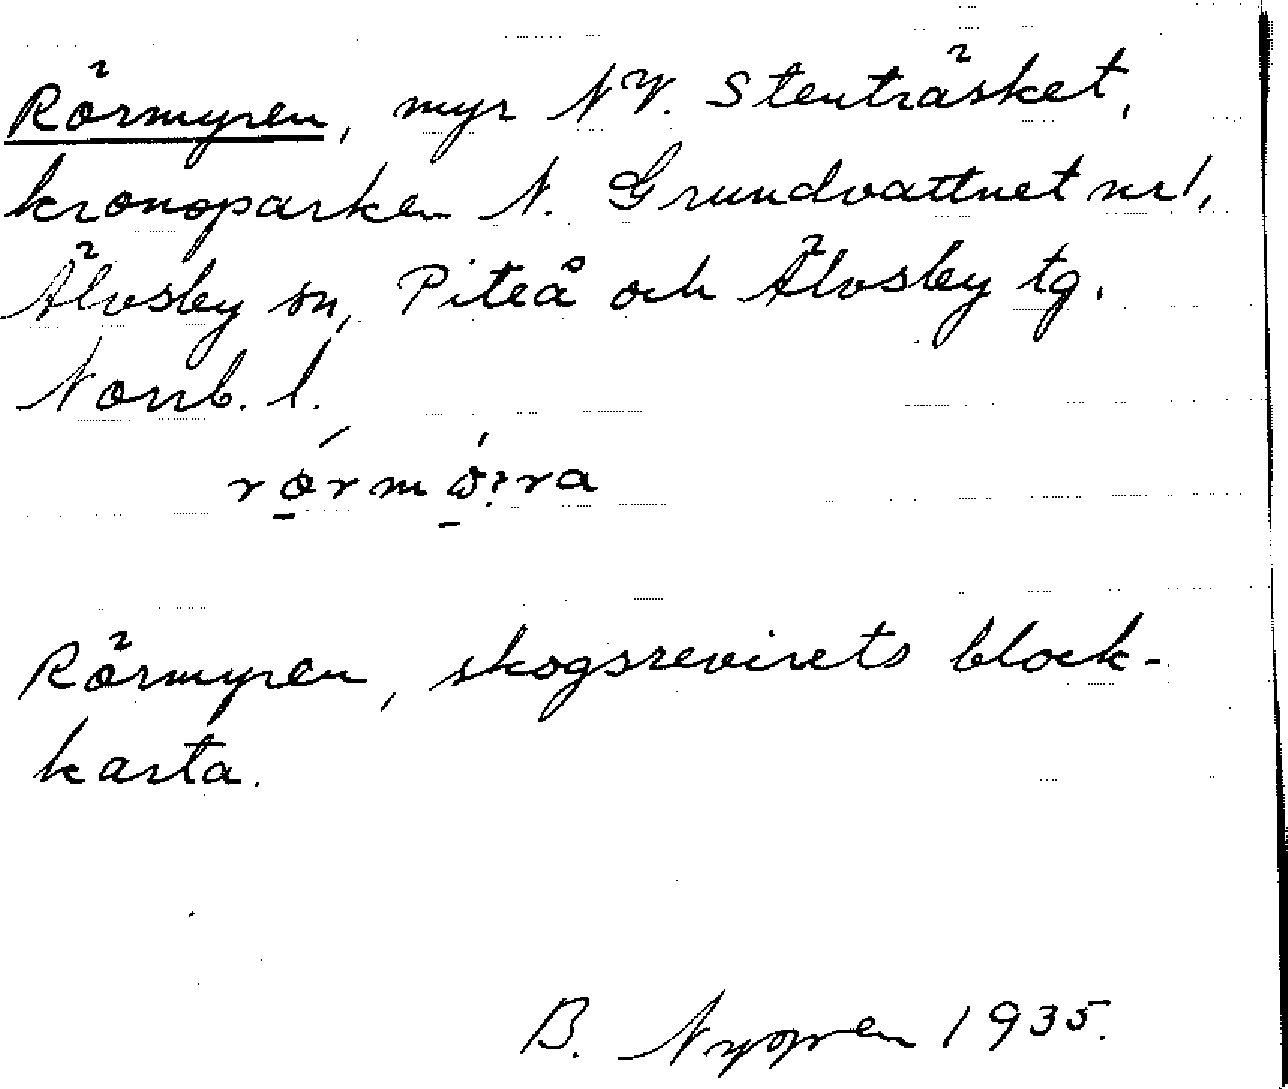 Rörmyren, myr NV. Stenträsket,
kronoparken N. Grundvattnet nr 1,
Älvsby sn, Piteå och Älvsby tg.
Norrb. l.
Rörmyren, skogsrevirets block-
karta.
B. Nygren 1935.